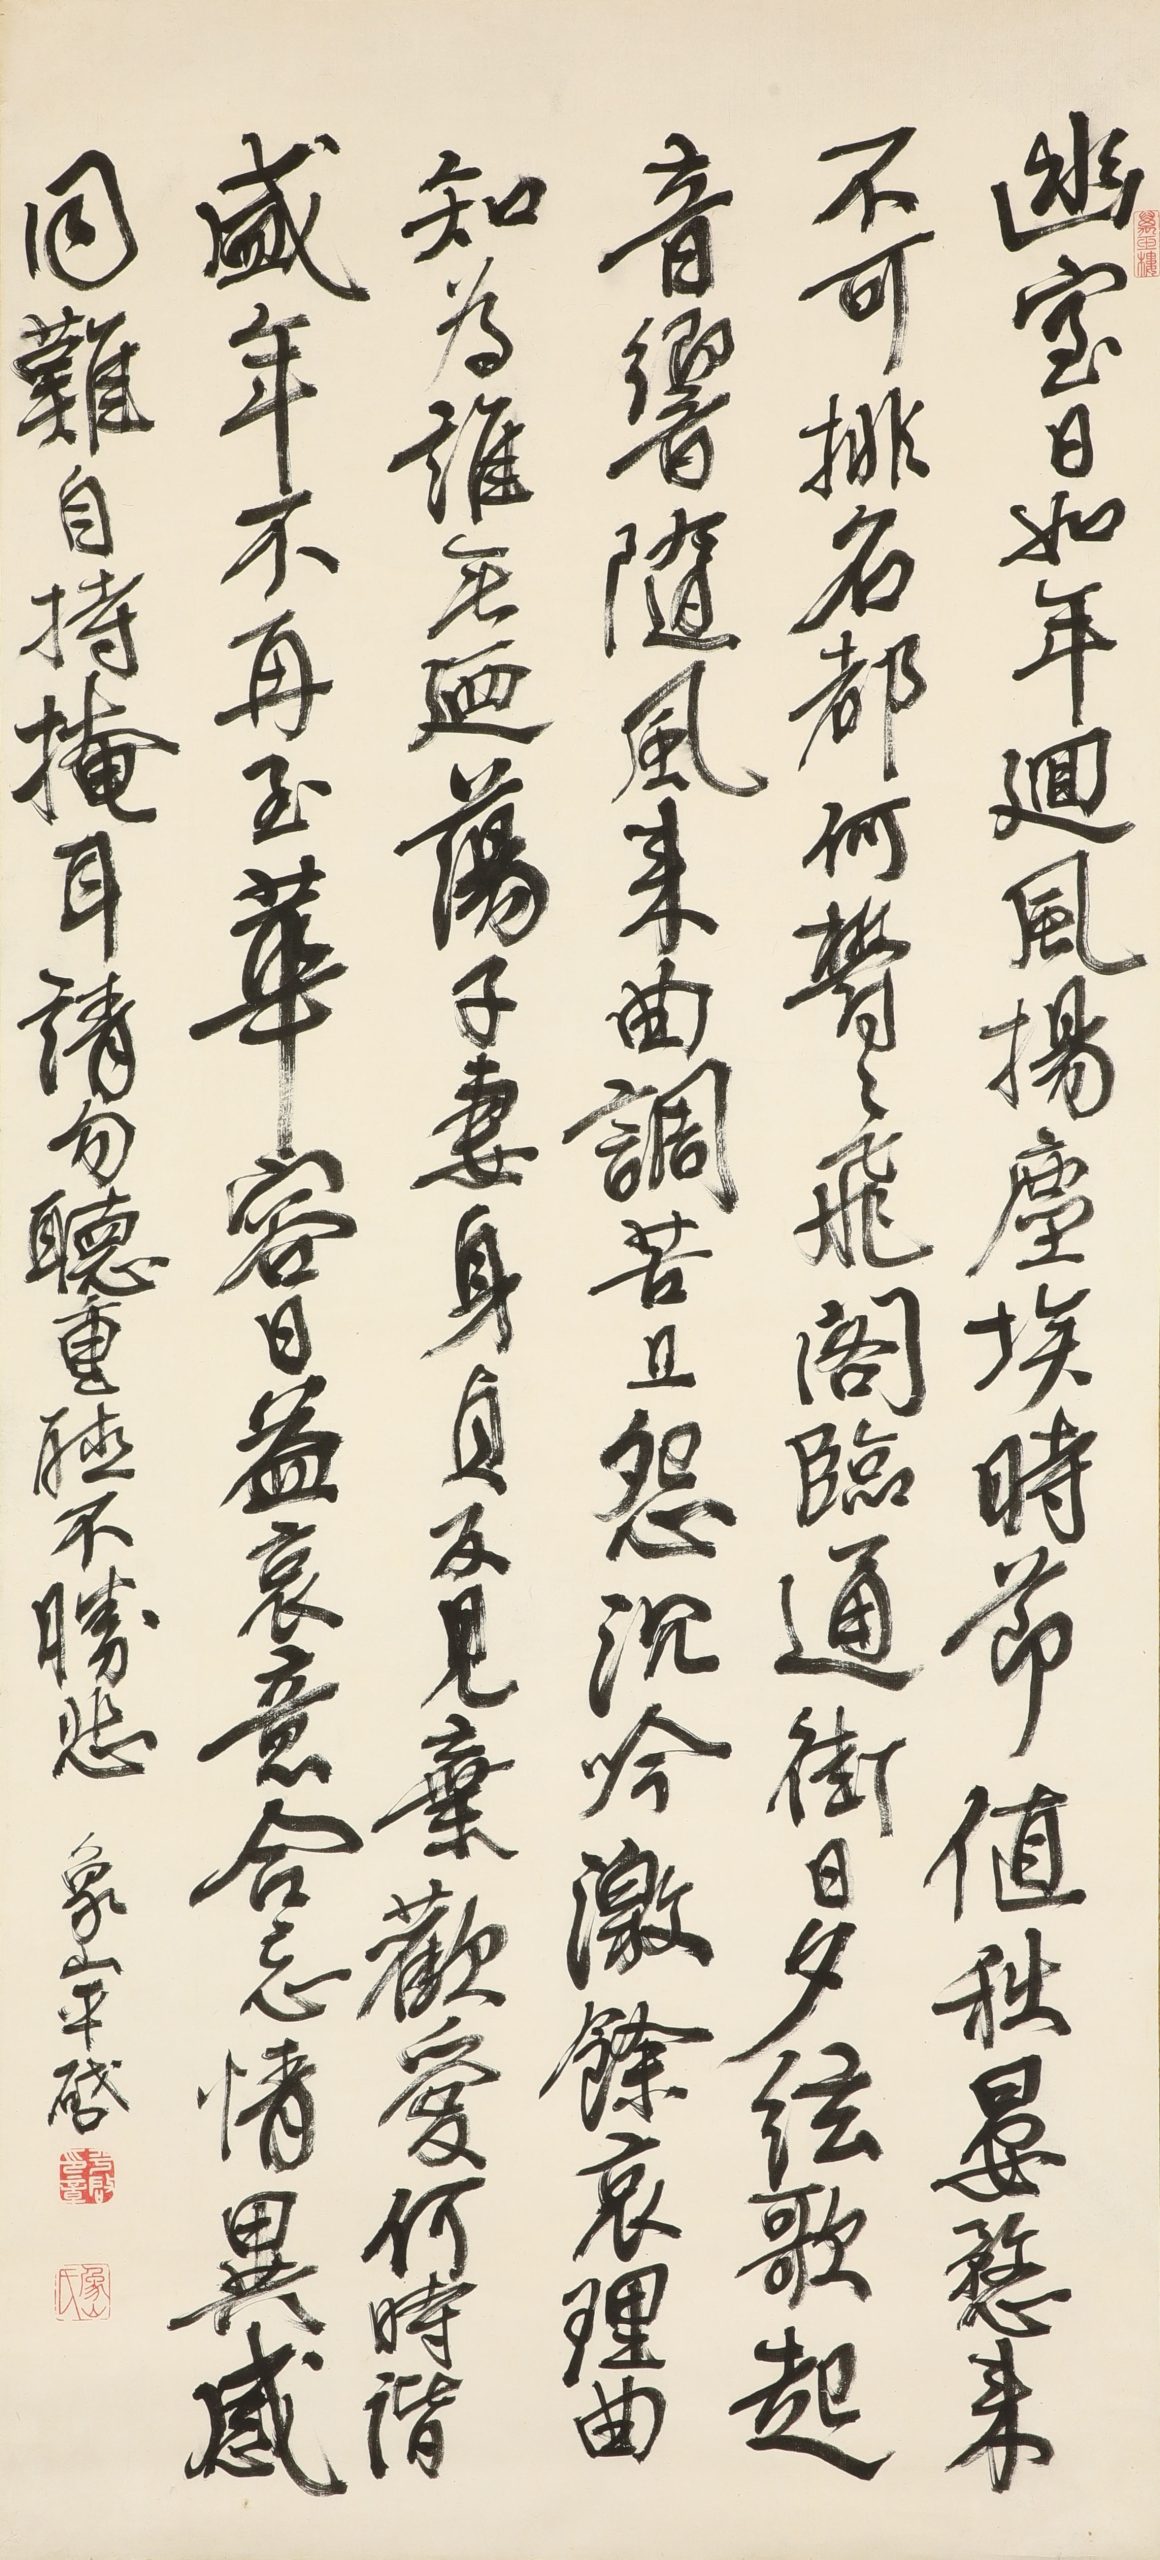 幽室日如年廻風揚塵埃時節値秋晏愁来
不可排名都何鬱々飛閣臨通街日夕絃歌起
音響隨風来曲調苦且怨沉吟激餘哀理曲
知為誰無廼蕩子妻身貞反見棄歡愛何時諧
盛年不再至華容日益衰意合忘情異感
同難自持掩耳請勿聽重聽不勝悲
象山平啓
象山氏